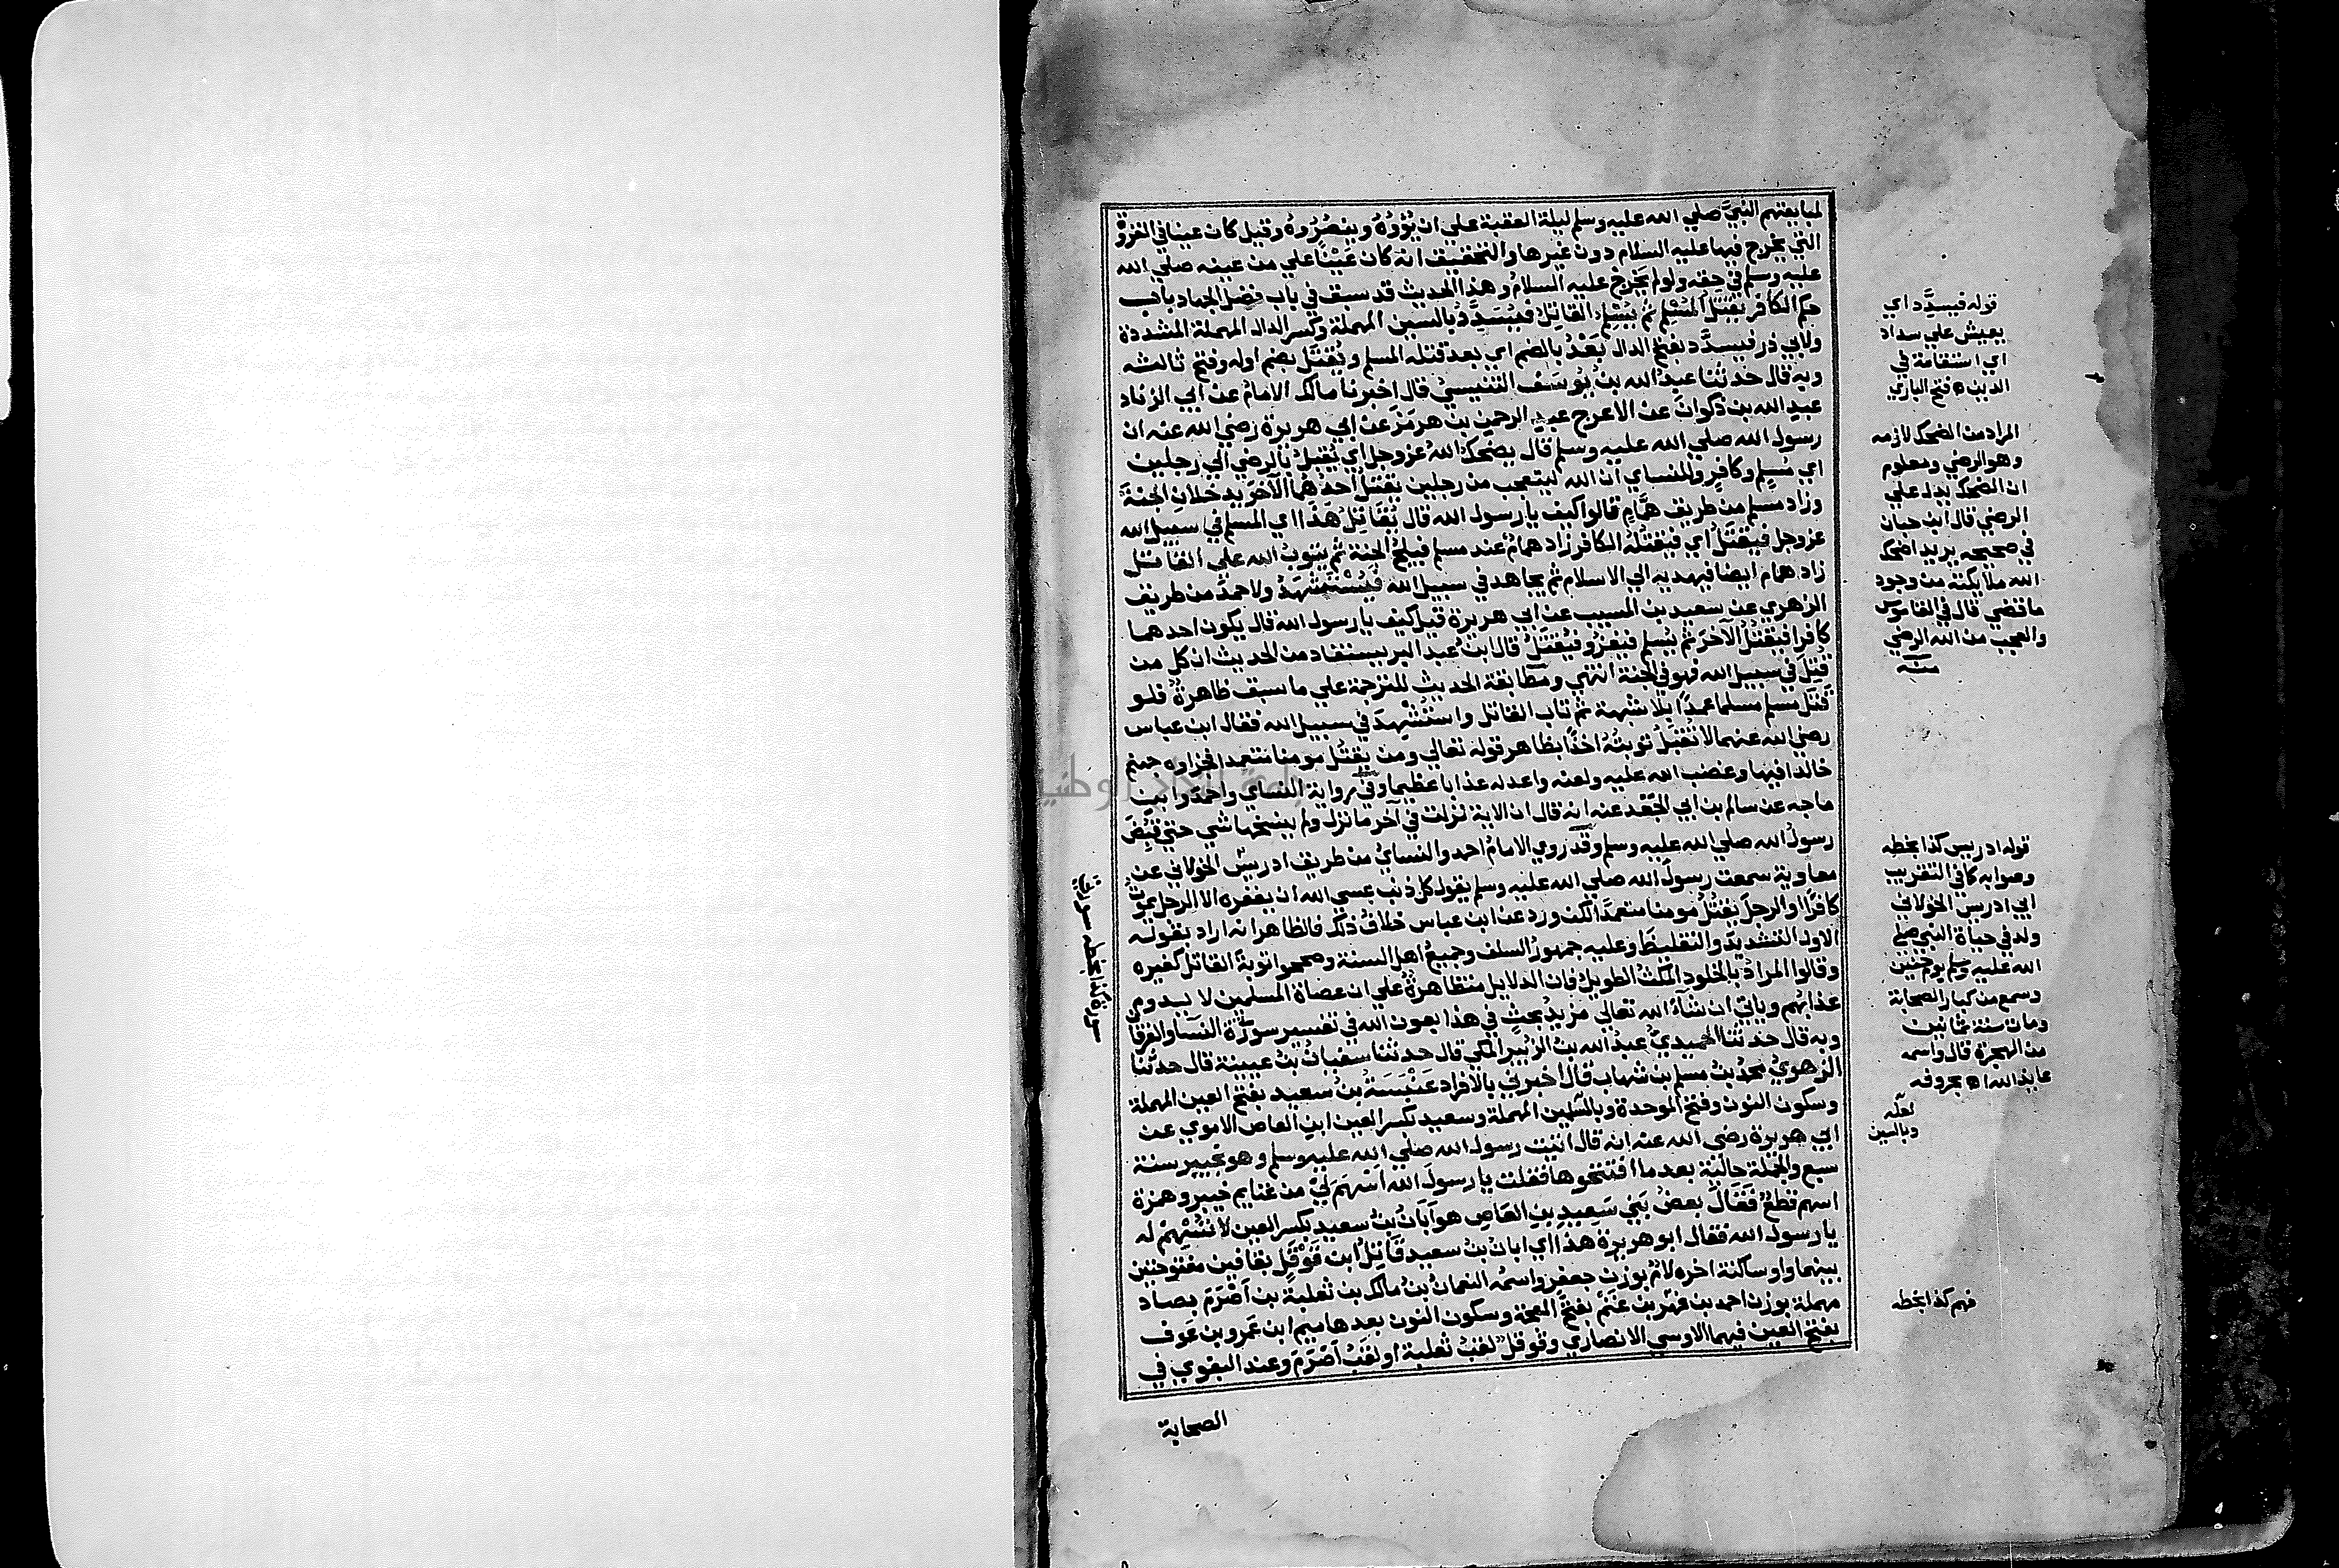 لمبايعتهم النبيَّ صلي الله عليه وسلم ليلة العقبة علي ان يُؤْوُهُ وينصُرُوهُ وقيل كان عينا في الغزوة
التي يخرج فيها عليه السلام دون غيرها والتحقيق انه كان عَيْنًا علي من عينه صلي الله
عليه وسلم في حقه ولو لم يخرج عليه السلام وهذا الحديث قد سبق في باب فضل الجهاد باب
حكم الكافر يَقْتُلُ المُسْلِمَ ثم يُسْلِمُ القاتل فَيُسَدِّدُ بالسين المهملة وكسر الدال المهملة المشددة
ولابي ذر فيسدَّد بفتح الدال بَعْدُ بالضم اي بعد قتله المسلم ويُقْتَلُ بضم اوله وفتح ثالثه
وبه قال حدثنا عبدُ الله بنُ يُوسَفَ التنيسيُ قال اخبرنا مالكُ الامامُ عن ابي الزناد
عبدِ الله بن ذكوانَ عن الاعرج عبدِ الرحمن بن هرمَزَ عن ابي هريرة رضي الله عنه ان
رسول الله صلي الله عليه وسلم قال يضحكُ اللهُ عز وجل اي يُقْبِلُ بالرضي الي رجلين
اي مُسلمٍ وكافرٍ وللنساي ان الله ليتعجب من رجلين يقتلُ احدُهما الآخرَ يدخلانِ الجنةَ
وزاد مسلم من طريق همّامٍ قالوا كيف يا رسول الله قال يُقَاتِلُ هَذَا اي المسلم في سبيل الله
عز وجل فَيُقْتَلُ اي فيقتلُهُ الكافر زاد همامُ عند مسلم فيلجُ الجنة ثم يتوبُ الله علي القاتل
زاد همام ايضا فيهديه الي الاسلام ثم يجاهد في سبيل الله فَيُسْتَشْهَدُ ولاحمدَ من طريق
الزهري عن سعيد بن المسيب عن ابي هريرة قيل كيف يا رسول الله قال يكون احدهما
كافرا فيَقْتُلُ الآخرَ ثم يُسلم فيغزو فَيُقْتَلُ قال ابنُ عبد البر يستفاد من الحديث ان كل من
قُتِلَ في سبيل الله فهو في الجنة انتهي ومطابقة الحديث للترجمة علي ما سبق ظاهرةٌ فلو
قَتَلَ مسلم مسلما عمدًا بلا شبهة ثم تاب القاتل واستُشْهِدَ في سبيل الله فقال ابن عباس
رضي الله عنهما لا تُقْبَلُ توبتُهُ اخذًا بظاهر قوله تعالي ومن يقتل مومنا متعمدا فجزاوه جهنم
خالدا فيها وغضب الله عليه ولعنه واعد له عذابا عظيما وفي رواية النساي واحمدَ وابنِ
ماجه عن سالم بن ابي الجعْد عنه انه قال ان الاية نزلت في آخر ما نزل ولم ينسخها شي حتي قُبِضَ
رسولُ الله صلي الله عليه وسلم وقد روي الامامُ احمد والنسايُ من طريق ادريسَ الخولاني عن
معاوية سمعت رسول الله صلي الله عليه وسلم يقول كل ذنب عسي الله ان يغفره الا الرجل يموتُ
كافرًا او الرجلَ يَقْتُلُ مومنا متعمدًا لكن ورد عن ابن عباس خلافُ ذلك فالظاهر انه اراد بقوله
الاول التشديدَ والتغليظَ وعليه جمهورُ السلف وجميعُ اهل السنة وصححوا توبةَ القاتل كغيره
وقالوا المرادُ بالخلود المكثُ الطويلُ فان الدلايل متظاهرةٌ علي ان عصاة المسلمين لا يدوم
عذابُهم وياتي ان شآءَ الله تعالي مزيدُ بحثٍ في هذا بعون الله في تفسير سورة النسآ والفرقان
وبه قال حدثنا الحميديُ عبدُ الله بنُ الزبير المكي قال حدثنا سفيانُ بنُ عيينة قال حدثنا
الزهويُ محمدُ بنُ مسلم بن شهاب قال اخبرني بالافراد عَنْبَسَةُ بنُ سعيد بفتح العين المهملة
وسكون النون وفتح الموحدة وبالسين المهملة وسعيد بكسر العين ابنِ العاص الاموي عن
ابي هريرة رضي الله عنه انه قال اتيت رسول الله صلي الله عليه وسلم وهو بخيبر سنة
سبع والجملة حالية بعد ما افتتحوها فقلت يا رسول الله اَسْهِمْ لي من غنايم خيبر وهمزة
اسهم قطعٌ فَقَالَ بعضُ بَني سَعِيدِ بنِ العَاصِ هو اَبَانُ بنُ سعيد بكسر العين لا تُسْهِمْ له
يا رسول الله فقال ابو هريرة هذا اي ابان بنُ سعيد قَاتِلُ ابن قَوْقَلٍ بقافين مفتوحتين
بينهما واو ساكنة اخره لامٌ بوزن جعفر واسمُه النعمانُ بنُ مالك بن ثعلبة بن اَصْرَمَ بصاد
مهملة بوزن احمد بن فهر بن غَنْمٍ بفتح المعجمة وسكون النون بعدها ميم ابن عَمرو بن عَوف
بفتح العين فيهما الاوسي الانصاري وقوقل لقبُ ثعلبة او لقبُ اَصْرَمَ وعند البغوي في
الصحابة
قوله فيسدَّد اي
يعيش علي سداد
اي استقامة في
الدين ه فتح الباري
المراد من الضحك لازمه
وهو الرضي ومعلوم
ان الضحك يدل علي
الرضي قال ابن حبان
في صحيحه يريد اضحك
الله ملايكته من وجود
ما قضي قال في القاموس
والعجب من الله الرضي
منه
قوله ادريس كذا بخطه
وصوابه كما في التقريب
ابي ادريس الخولاني
ولد في حياة النبي صلي
الله عليه وسلم يوم حنين
وسمع من كبار الصحابة
ومات سنة ثمانين
من الهجرة قال واسمه
عايذ الله اه بحروفه
لعله
وبالسين
فهر كذا بخطه
سورة كذا بخطه سورتي